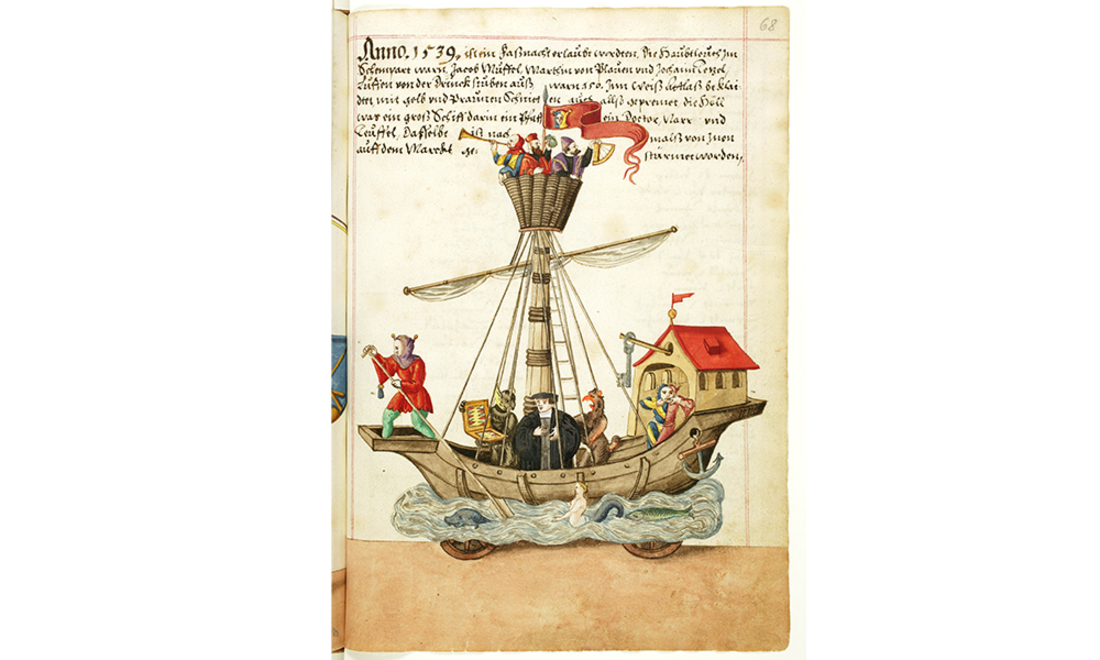 68
Anno. 1539, ist ein Faßnacht erlaubt worden, die Haubtleuth Im
Schempart warn, Jacob Muffel, Marthin von Plauen vnd Jochaim Tezel,
Luffen von der Drinckstuben auß warn 150. Inn weiß attlaß beklai
dett mit gelb vnd Praunen Schnietten auch allß gepremet, die Höll
war ein groß Schiff darin ein Pfaff ein Doctor, Narr vnd
Teuffel, Dasselbe ist nach malß von Inen
auff dem Marckt ge stürmet worden,